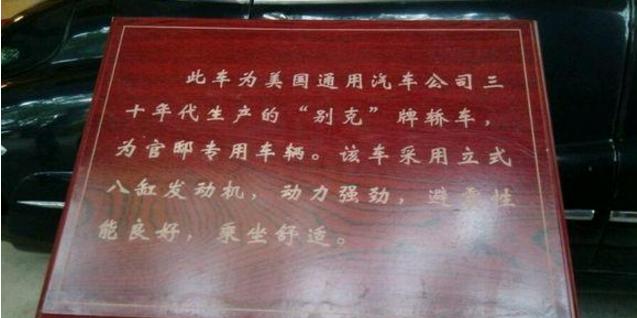 此车为美国通用汽车公司三
十年代生产的“别克”牌轿车，
为官邸专用车辆。该车采用立式
八缸发动机，动力强劲，避震性
能良好，乘坐舒适。